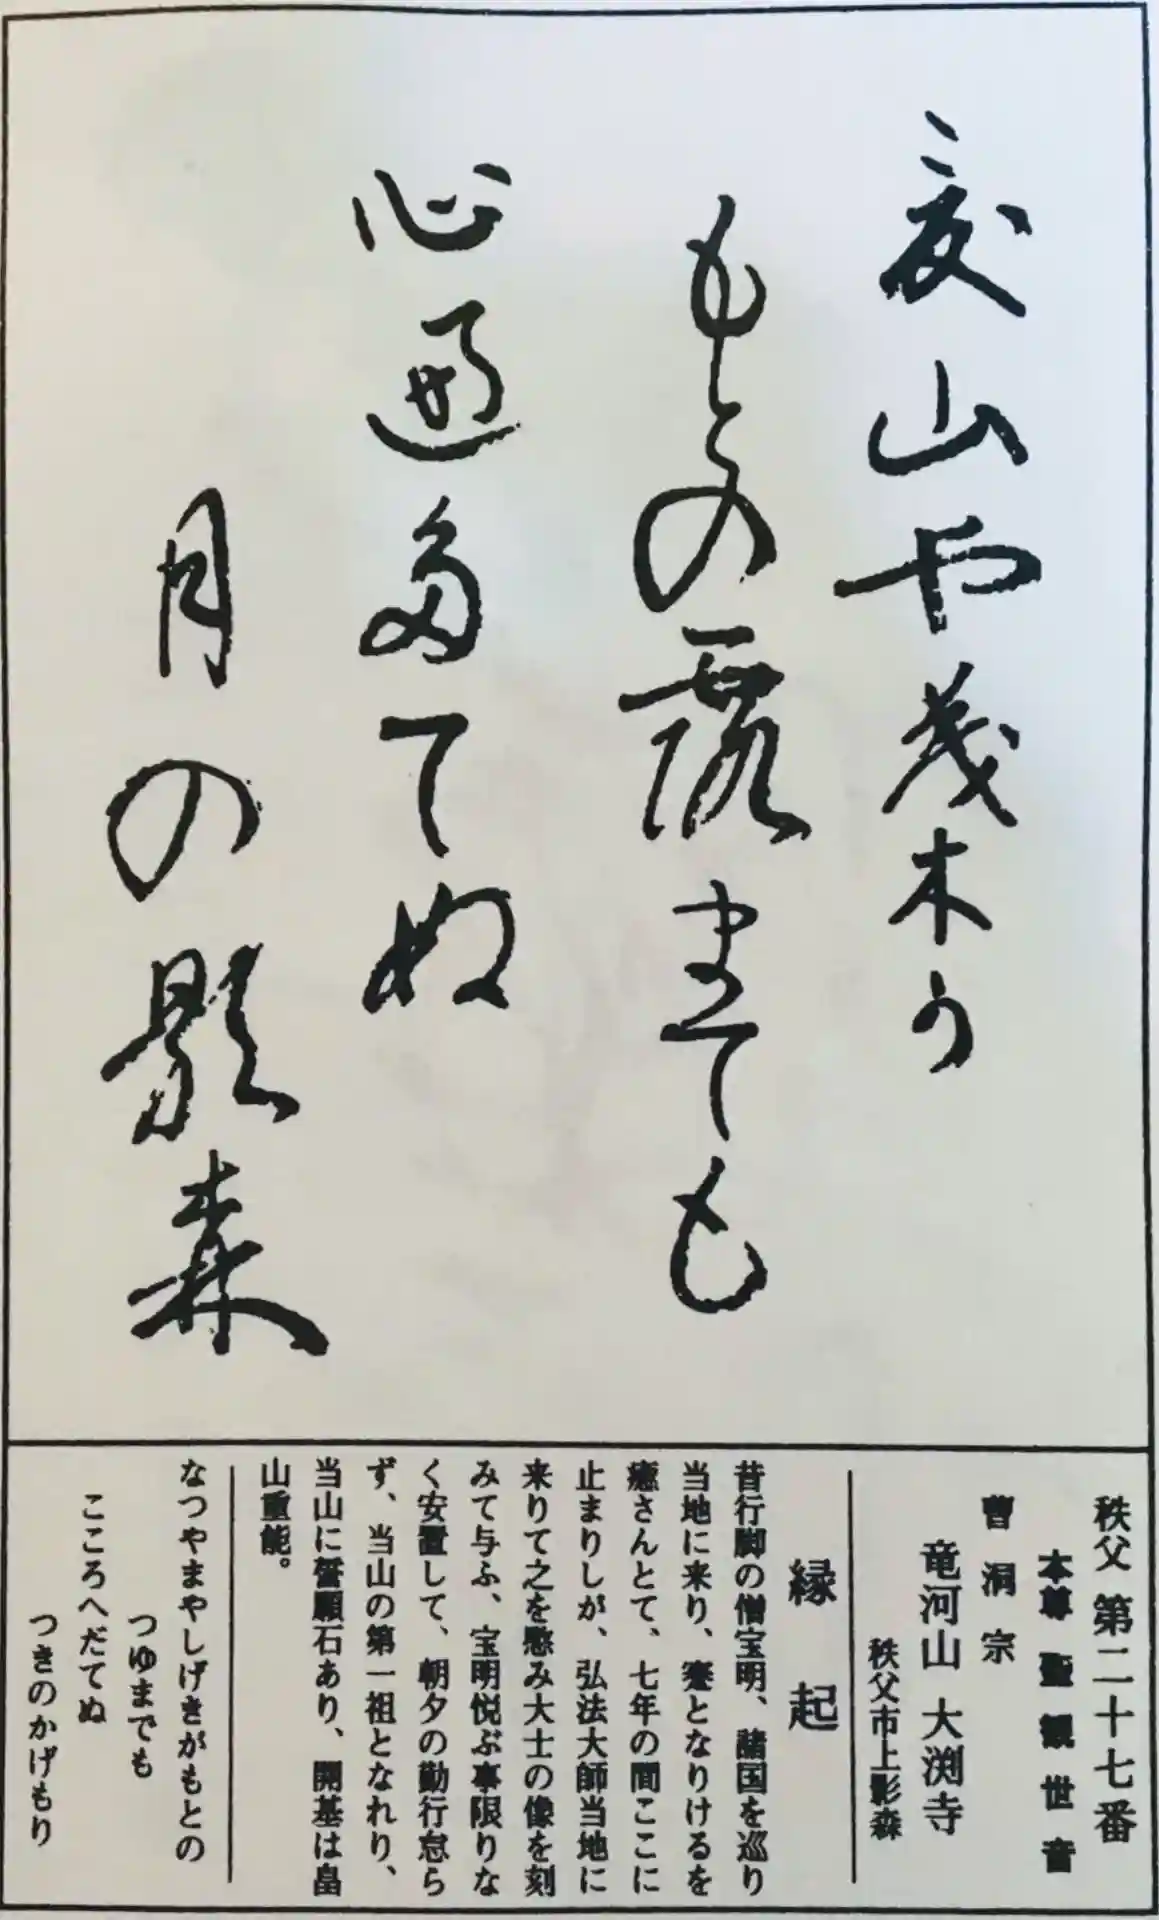 夏山や茂木う
もとの露までも
心遍多てぬ
月の影森
秩父 第二十七番
本尊 聖観世音
曹洞宗
竜河山 大渕寺
秩父市上影森
縁起
昔行脚の僧宝明、諸国を巡り
当地に来り、蹇となりけるを
癒さんとて、七年の間ここに
止まりしが、弘法大師当地に
来りて之を愍み大士の像を刻
みて与ふ、宝明悦ぶ事限りな
く安置して、朝夕の勤行怠ら
ず、当山の第一祖となれり、
当山に誓願石あり、開基は畠
山重能。
なつやまやしげきがもとの
つゆまでも
こころへだてぬ
つきのかげもり